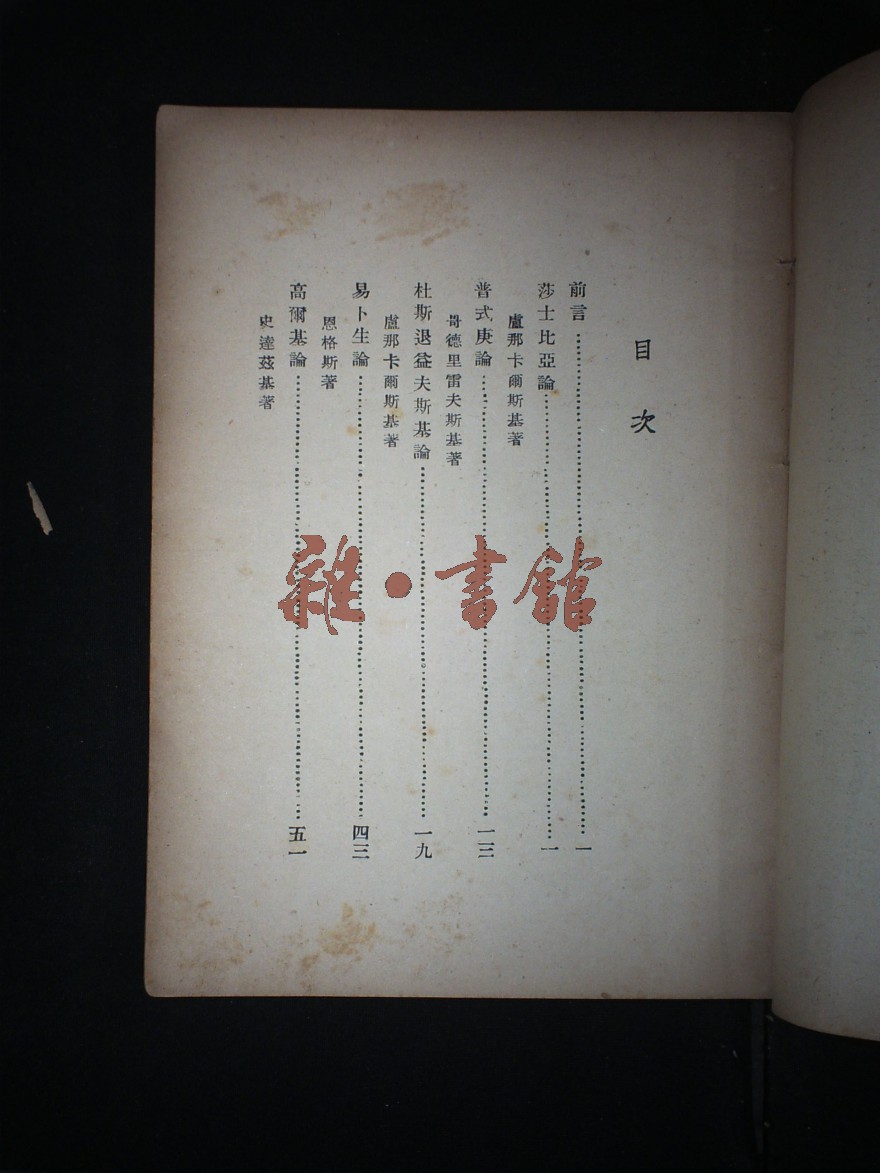 目次
前言……一
莎士比亞論……一
盧那卡爾斯基著
普式庚論……一三
哥德里雷夫斯基著
杜斯退益夫斯基論……一九
盧那卡爾斯基著
易卜生論……四三
恩格斯著
高爾基論……五一
史達茲基著
雜·書館